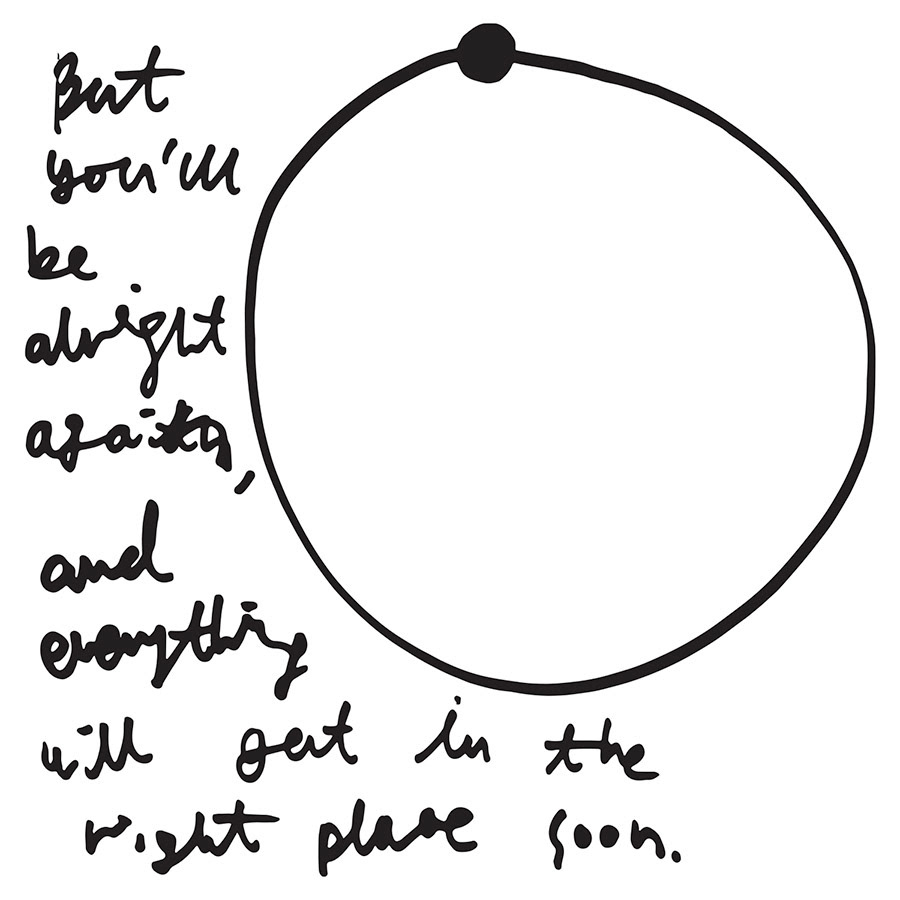 But
you'll
be
alright
again,
and
everything
will get in the
right place soon.